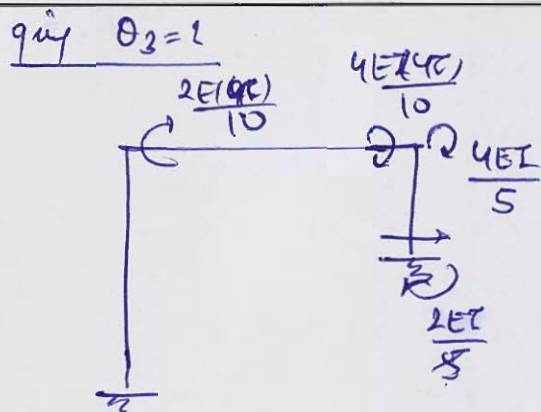 θ3=1
2E(4I)/10
4E(4I)/10
4EI/5
2EI/5